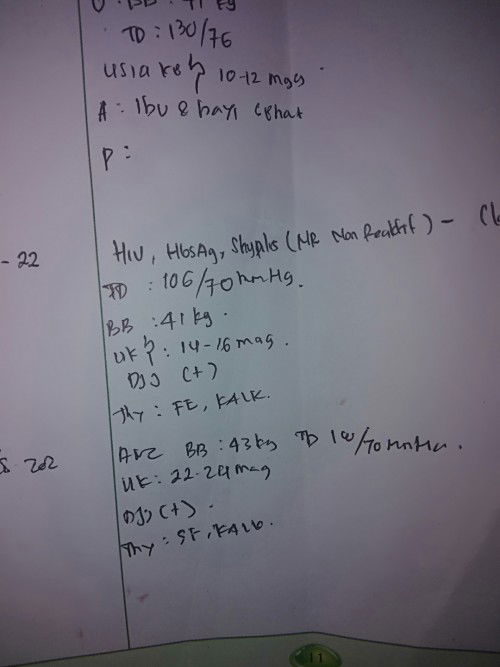 O : BB : 41 kg
TD : 130/76
usia keh 10-12 mgg
A : Ibu & bayi sehat
P :
- 22 HIV, HbsAg, Shyplis (NR Non Reaktif) -
TD : 106/70 mmHg.
BB : 41 kg.
UKh : 14-16 mgg.
DJJ (+)
Thy : FE, KALK.
BB : 43 kg TD /70 mmHg.
UK : 22-24 mgg
DJJ (+).
Thy : SF, KALK.
11